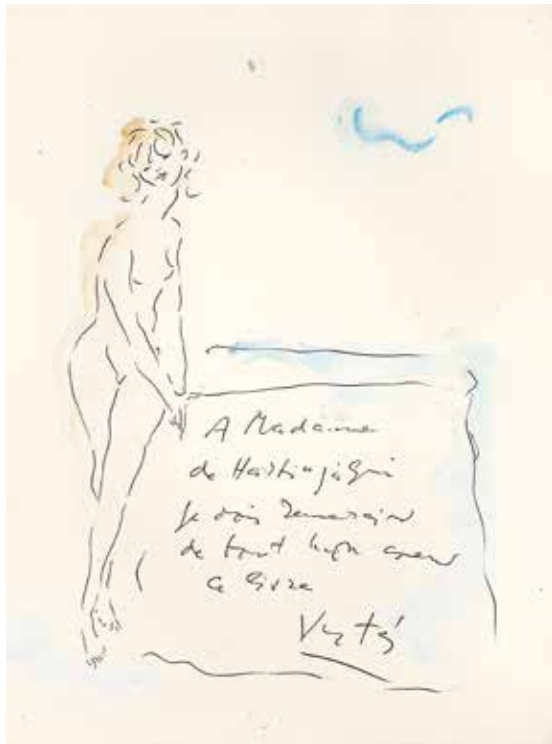 A Madame
de Hastings à qui
je dois remercier
de tout mon coeur
ce livre
Vertès